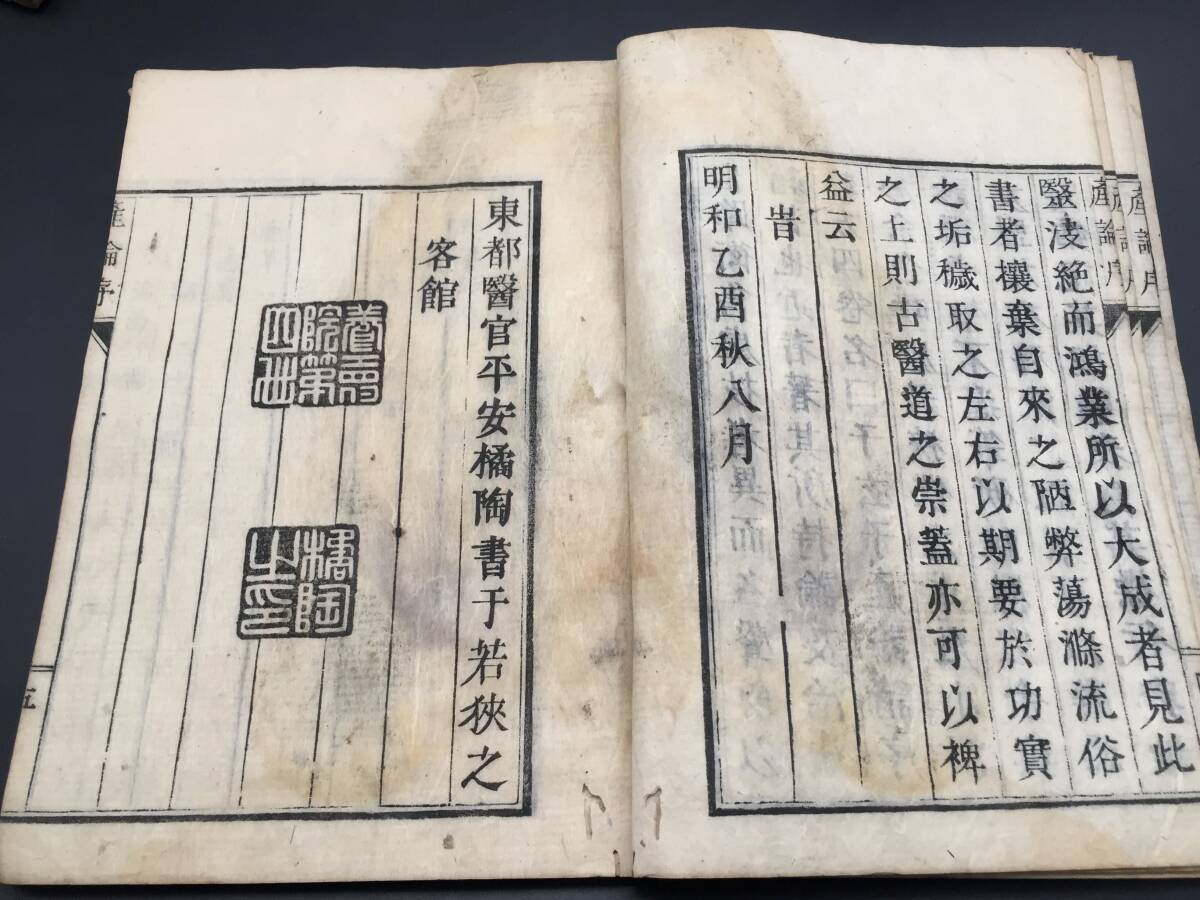 產論序
產論序
毉没絶而鴻業所以大成者見此
書者攘棄自來之陋弊蕩滌流俗
之垢穢取之左右以期要於功實
之上則古醫道之崇葢亦可以裨
益云
旹
明和乙酉秋八月
東都醫官平安橘陶書于若狹之
客館
養壽院第四世
橘陶之印
產論序
五